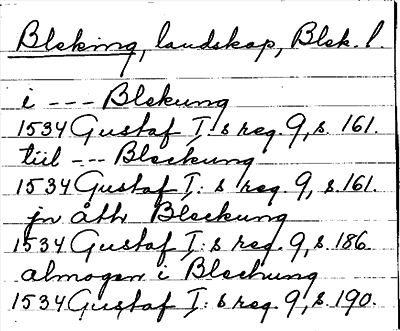 Bleking, landskap, Blek. l.
i --- Blekung
1534 Gustaf I:s reg. 9, s. 161.
tiil --- Bleckung
1534 Gustaf I:s reg. 9, s. 161.
jn åth Bleckung
1534 Gustaf I:s reg. 9, s. 186
almogen i Bleckung
1534 Gustaf I:s reg. 9, s. 190.